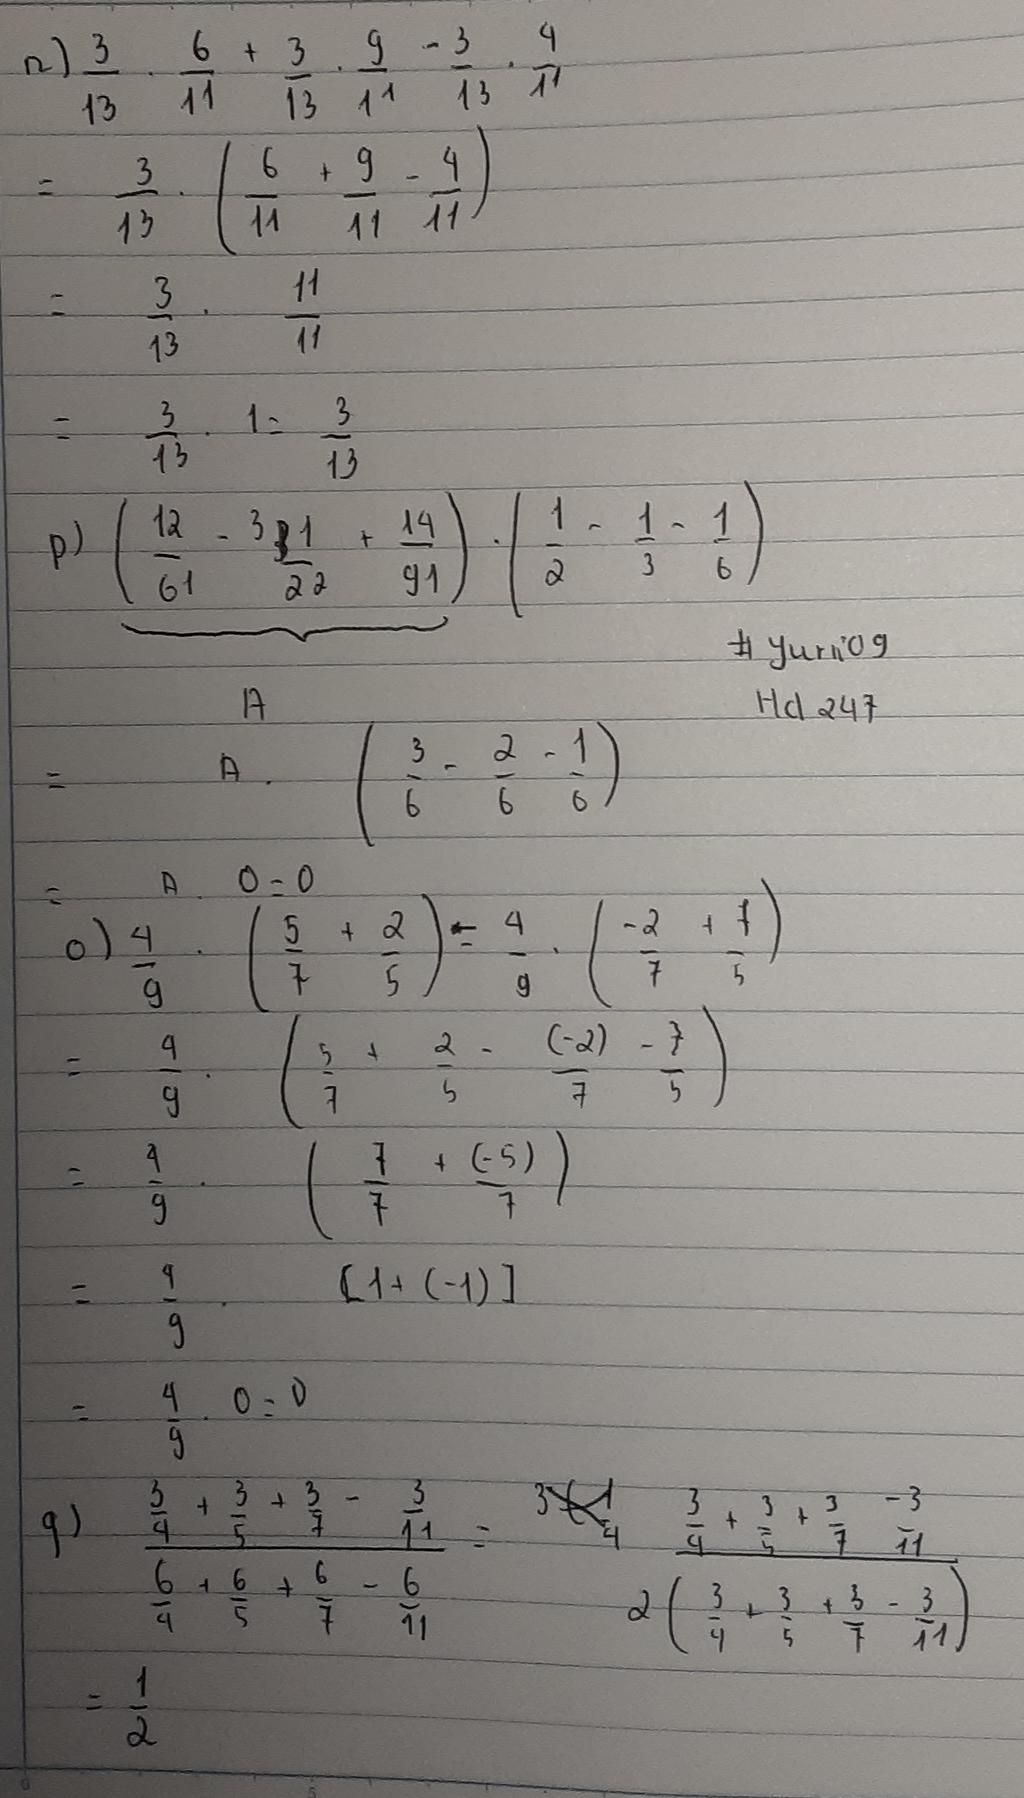 n) 3/13 . 6/11 + 3/13 . 9/11 - 3/13 . 4/11
= 3/13 . (6/11 + 9/11 - 4/11)
= 3/13 . 11/11
= 3/13 . 1 = 3/13
p) (12/61 - 31/22 + 14/91) . (1/2 - 1/3 - 1/6)
#yurii09
A
Hd 247
= A . (3/6 - 2/6 - 1/6)
= A . 0 = 0
o) 4/9 . (5/7 + 2/5) - 4/9 . (-2/7 + 7/5)
= 4/9 . (5/7 + 2/5 - (-2)/7 - 7/5)
= 4/9 . (7/7 + (-5)/7)
= 4/9 . [1 + (-1)]
= 4/9 . 0 = 0
q) (3/4 + 3/5 + 3/7 - 3/11)/(6/4 + 6/5 + 6/7 - 6/11) = (3/4 + 3/5 + 3/7 - 3/11)/(2(3/4 + 3/5 + 3/7 - 3/11))
= 1/2